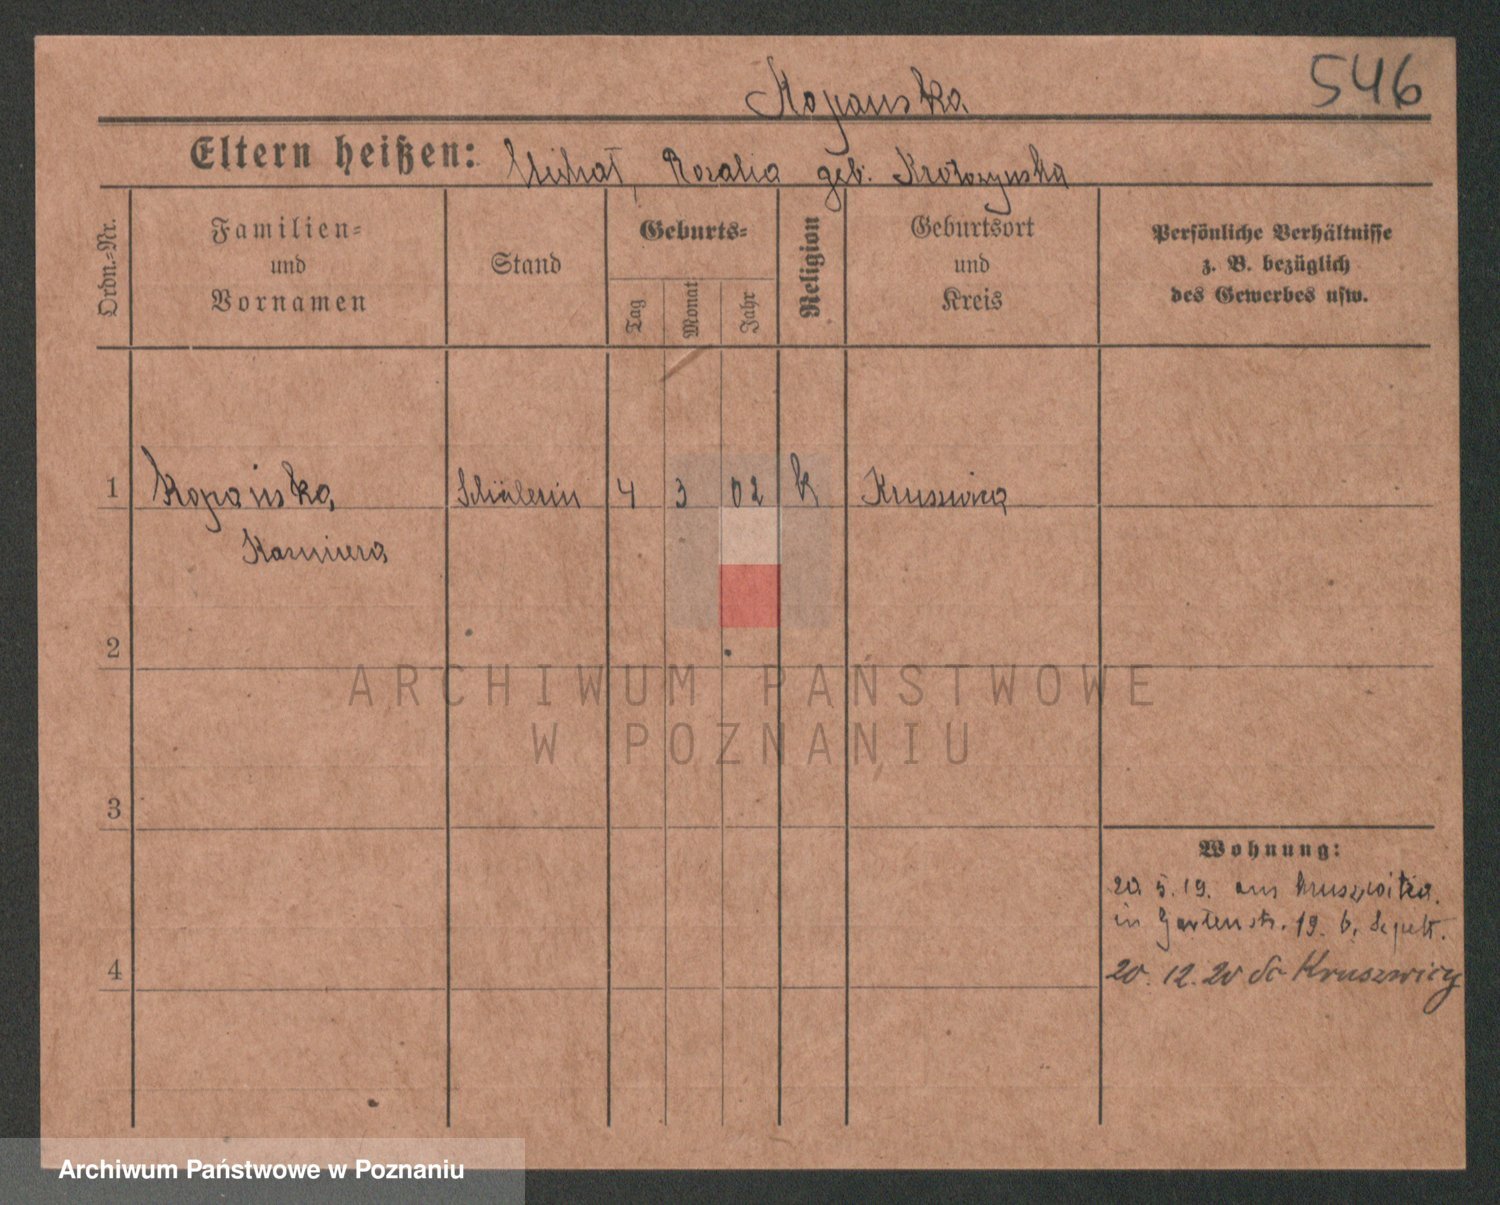 Kopańska
546
Eltern heißen: Michał, Rozalia geb. Krotoszyńska
Ordn.-Nr.
Familien- und Vornamen
Stand
Geburts-
Tag
Monat
Jahr
Religion
Geburtsort und Kreis
Persönliche Verhältnisse
z. B. bezüglich
des Gewerbes usw.
1 Kopańska, Schülerin 4 3 02 k Kruszwica
Kazimiera
2
ARCHIWUM PAŃSTWOWE
W POZNANIU
3
Wohnung:
20. 5. 19. aus Kruszwitza.
in Gartenstr. 19. b.
4
20. 12. 20 do Kruszwicy
Archiwum Państwowe w Poznaniu